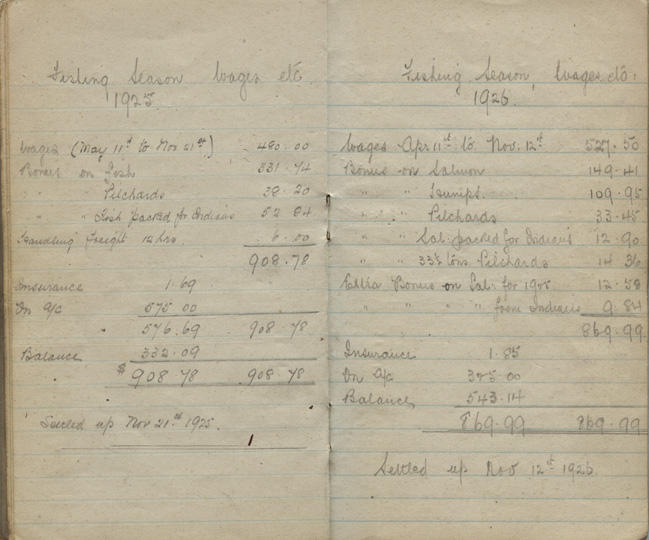 Fishing Season Wages etc
1925
Wages (May 11th to Nov 21st) 480.00
Bonus on Fish 331.74
" " Pilchards 38.20
" " Fish packed for Indians 52.84
Handling Freight 12 hrs. 6.00
908.78
Insurance 1.69
On a/c 575.00
576.69 908.78
Balance 332.09
$ 908.78 908.78
Settled up Nov 21st 1925.
Fishing Season, Wages etc.
1926.
Wages Apr 11th to Nov. 12th 527.50
Bonus on Salmon 149.41
" " Humps. 109.95
" " Pilchards 33.45
" " Sal. packed for Indians 12.90
" " tons Pilchards 14.36
Extra Bonus on Sal. for 1925 12.58
" " " " from Indians 9.84
869.99
Insurance 1.85
On a/c 325.00
Balance 543.14
869.99 869.99
Settled up Nov 12th 1926.